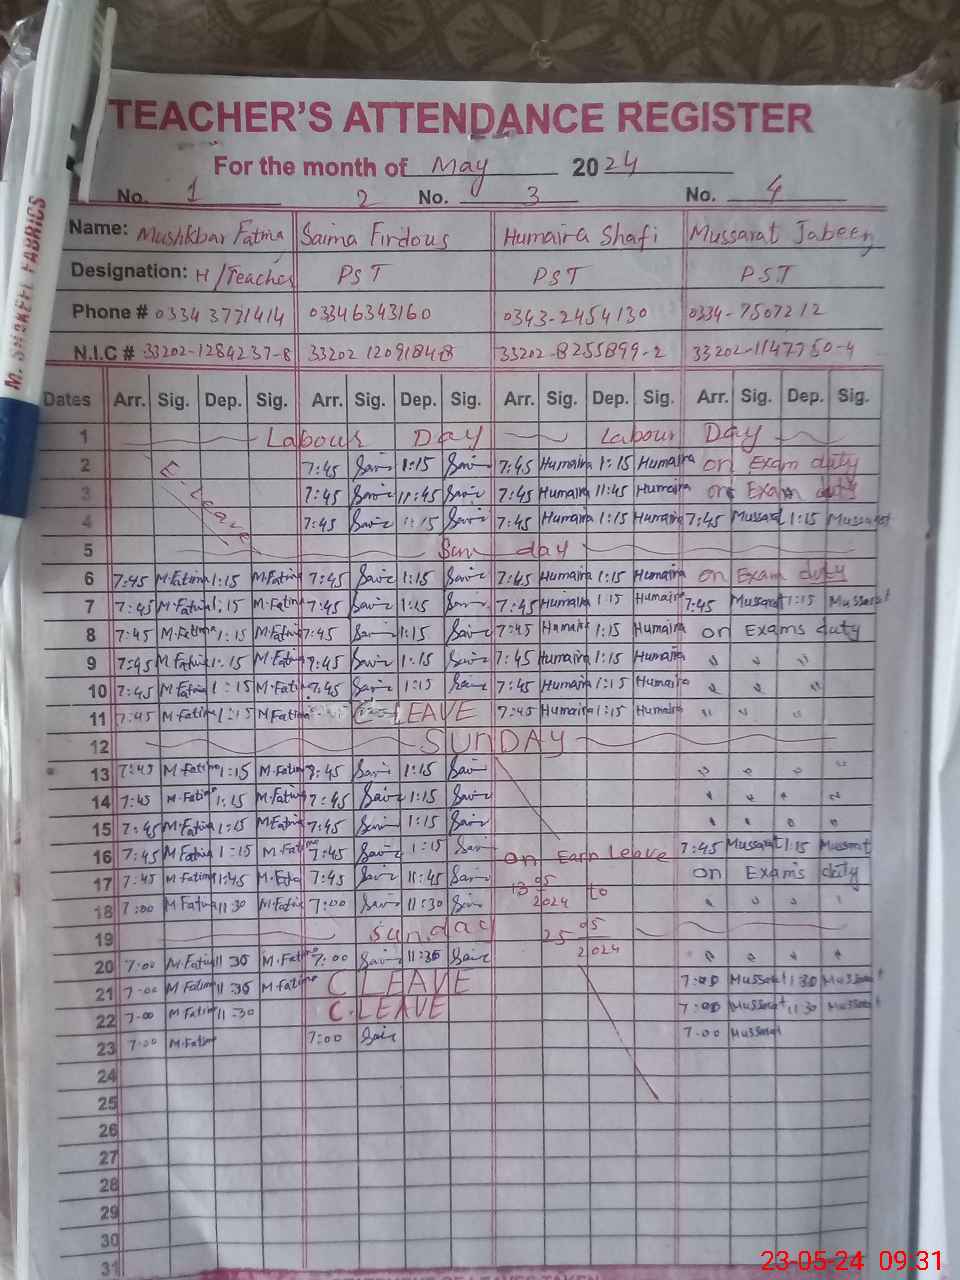 M. SHAKEEL FABRICS
TEACHER'S ATTENDANCE REGISTER
For the month of May 2024
No. 1 2 No. 3 No. 4
Name: Mushkbar Fatima Saima Firdous Humaira Shafi Mussarat Jabeen
Designation: H/Teacher PST PST PST
Phone # 0334 3771414 03346343160 0343-2454130 0334-7507212
N.I.C # 33202-1284237-8 33202 12091848 33202-8255899-2 33202-1147750-4
Dates Arr. Sig. Dep. Sig. Arr. Sig. Dep. Sig. Arr. Sig. Dep. Sig. Arr. Sig. Dep. Sig.
1 Labour Day Labour Day
2 E-Leave 7:45 1:15 7:45 Humaira 1:15 Humaira on Exam duty
3 7:45 11:45 7:45 Humaira 11:45 Humaira on Exam duty
4 7:45 1:15 7:45 Humaira 1:15 Humaira 7:45 Mussarat 1:15 Mussarat
5 Sun day
6 7:45 M.Fatima 1:15 M.Fatima 7:45 1:15 7:45 Humaira 1:15 Humaira on Exam duty
7 7:45 M.Fatima 1:15 M.Fatima 7:45 1:15 7:45 Humaira 1:15 Humaira 7:45 Mussarat 1:15 Mussarat
8 7:45 M.Fatima 1:15 M.Fatima 7:45 1:15 7:45 Humaira 1:15 Humaira on Exams duty
9 7:45 M.Fatima 1:15 M.Fatima 7:45 1:15 7:45 Humaira 1:15 Humaira " " "
10 7:45 M.Fatima 1:15 M.Fatima 7:45 1:15 7:45 Humaira 1:15 Humaira " " "
11 7:45 M.Fatima 1:15 M.Fatima LEAVE 7:45 Humaira 1:15 Humaira " " "
12 SUNDAY
13 7:45 M.Fatima 1:15 M.Fatima 7:45 1:15 " " " "
14 7:45 M.Fatima 1:15 M.Fatima 7:45 1:15 " " " "
15 7:45 M.Fatima 1:15 M.Fatima 7:45 1:15 " " " "
16 7:45 M.Fatima 1:15 M.Fatima 7:45 1:15 on Earn Leave 7:45 Mussarat 1:15 Mussarat
17 7:45 M.Fatima 11:45 M.Fatima 7:45 11:45 13 05 2024 to on Exams duty
18 7:00 M.Fatima 11:30 M.Fatima 7:00 11:30 " " " "
19 Sunday 25 05 2024
20 7:00 M.Fatima 11:30 M.Fatima 7:00 11:30 " " " "
21 7:00 M.Fatima 11:30 M.Fatima C LEAVE 7:00 Mussarat 11:30 Mussarat
22 7:00 M.Fatima 11:30 C.LEAVE 7:00 Mussarat 11:30 Mussarat
23 7:00 M.Fatima 7:00 7:00 Mussarat
24
25
26
27
28
29
30
31
23-05-24 09:31